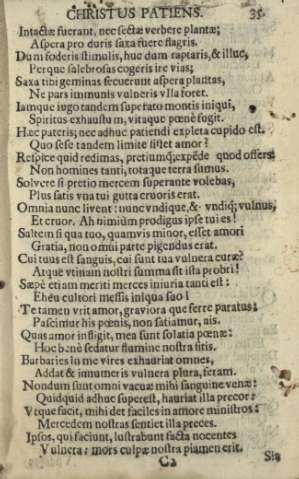 CHRISTUS PATIENS. 35
Intactæ fuerant, nec sectæ verbere plantæ;
Aspera pro duris saxa fuere flagris.
Dum foderis stimulis, huc dum raptaris, & illuc,
Perque salebrosas cogeris ire vias;
Saxa tibi geminas secuerunt aspera plantas,
Ne pars immunis vulneris ulla foret.
Iamque iugo tandem superato montis iniqui,
Spiritus exhaustum, vitaque pœnè fugit.
Hæc pateris; nec adhuc patiendi expleta cupido est.
Quo sese tandem limite sistet amor?
Respice quid redimas, pretiumq; expēde quod offers.
Non homines tanti, tota que terra sumus.
Solvere si pretio mercem superante volebas,
Plus satis vna tui gutta cruoris erat.
Omnia nunc livent: nunc vndique, &· vndiq; vulnus,
Et cruor. Ah nimiùm prodigus ipse tui es!
Saltem si qua tuo, quamvis minor, esset amori
Gratia, non omni parte pigendus erat.
Cui tuus est sanguis, cui sunt tua vulnera curæ?
Atque vtinam nostri summa sit ista probri!
Sæpè etiam meriti merces iniuria tanti est:
Eheu cultori messis iniqua suo!
Te tamen vrit amor, graviora que ferre paratus;
Pascimur his pœnis, non satiamur, ais.
Quas amor infligit, mea sunt solatia pœnæ:
Hoc bene sedatur flumine nostra sitis.
Barbaries in me vires exhauriat omnes,
Addat & innumeris vulnera plura, feram.
Nondum sunt omni vacuæ mihi sanguine venæ:
Quidquid adhuc superest, hauriat illa precor:
Vtque facit, mihi det faciles in amore ministros:
Mercedem nostras sentiet illa preces.
Ipsos, qui faciunt, lustrabunt facta nocentes
Vulnera: mors culpæ nostra piamen erit.
C2 Sia